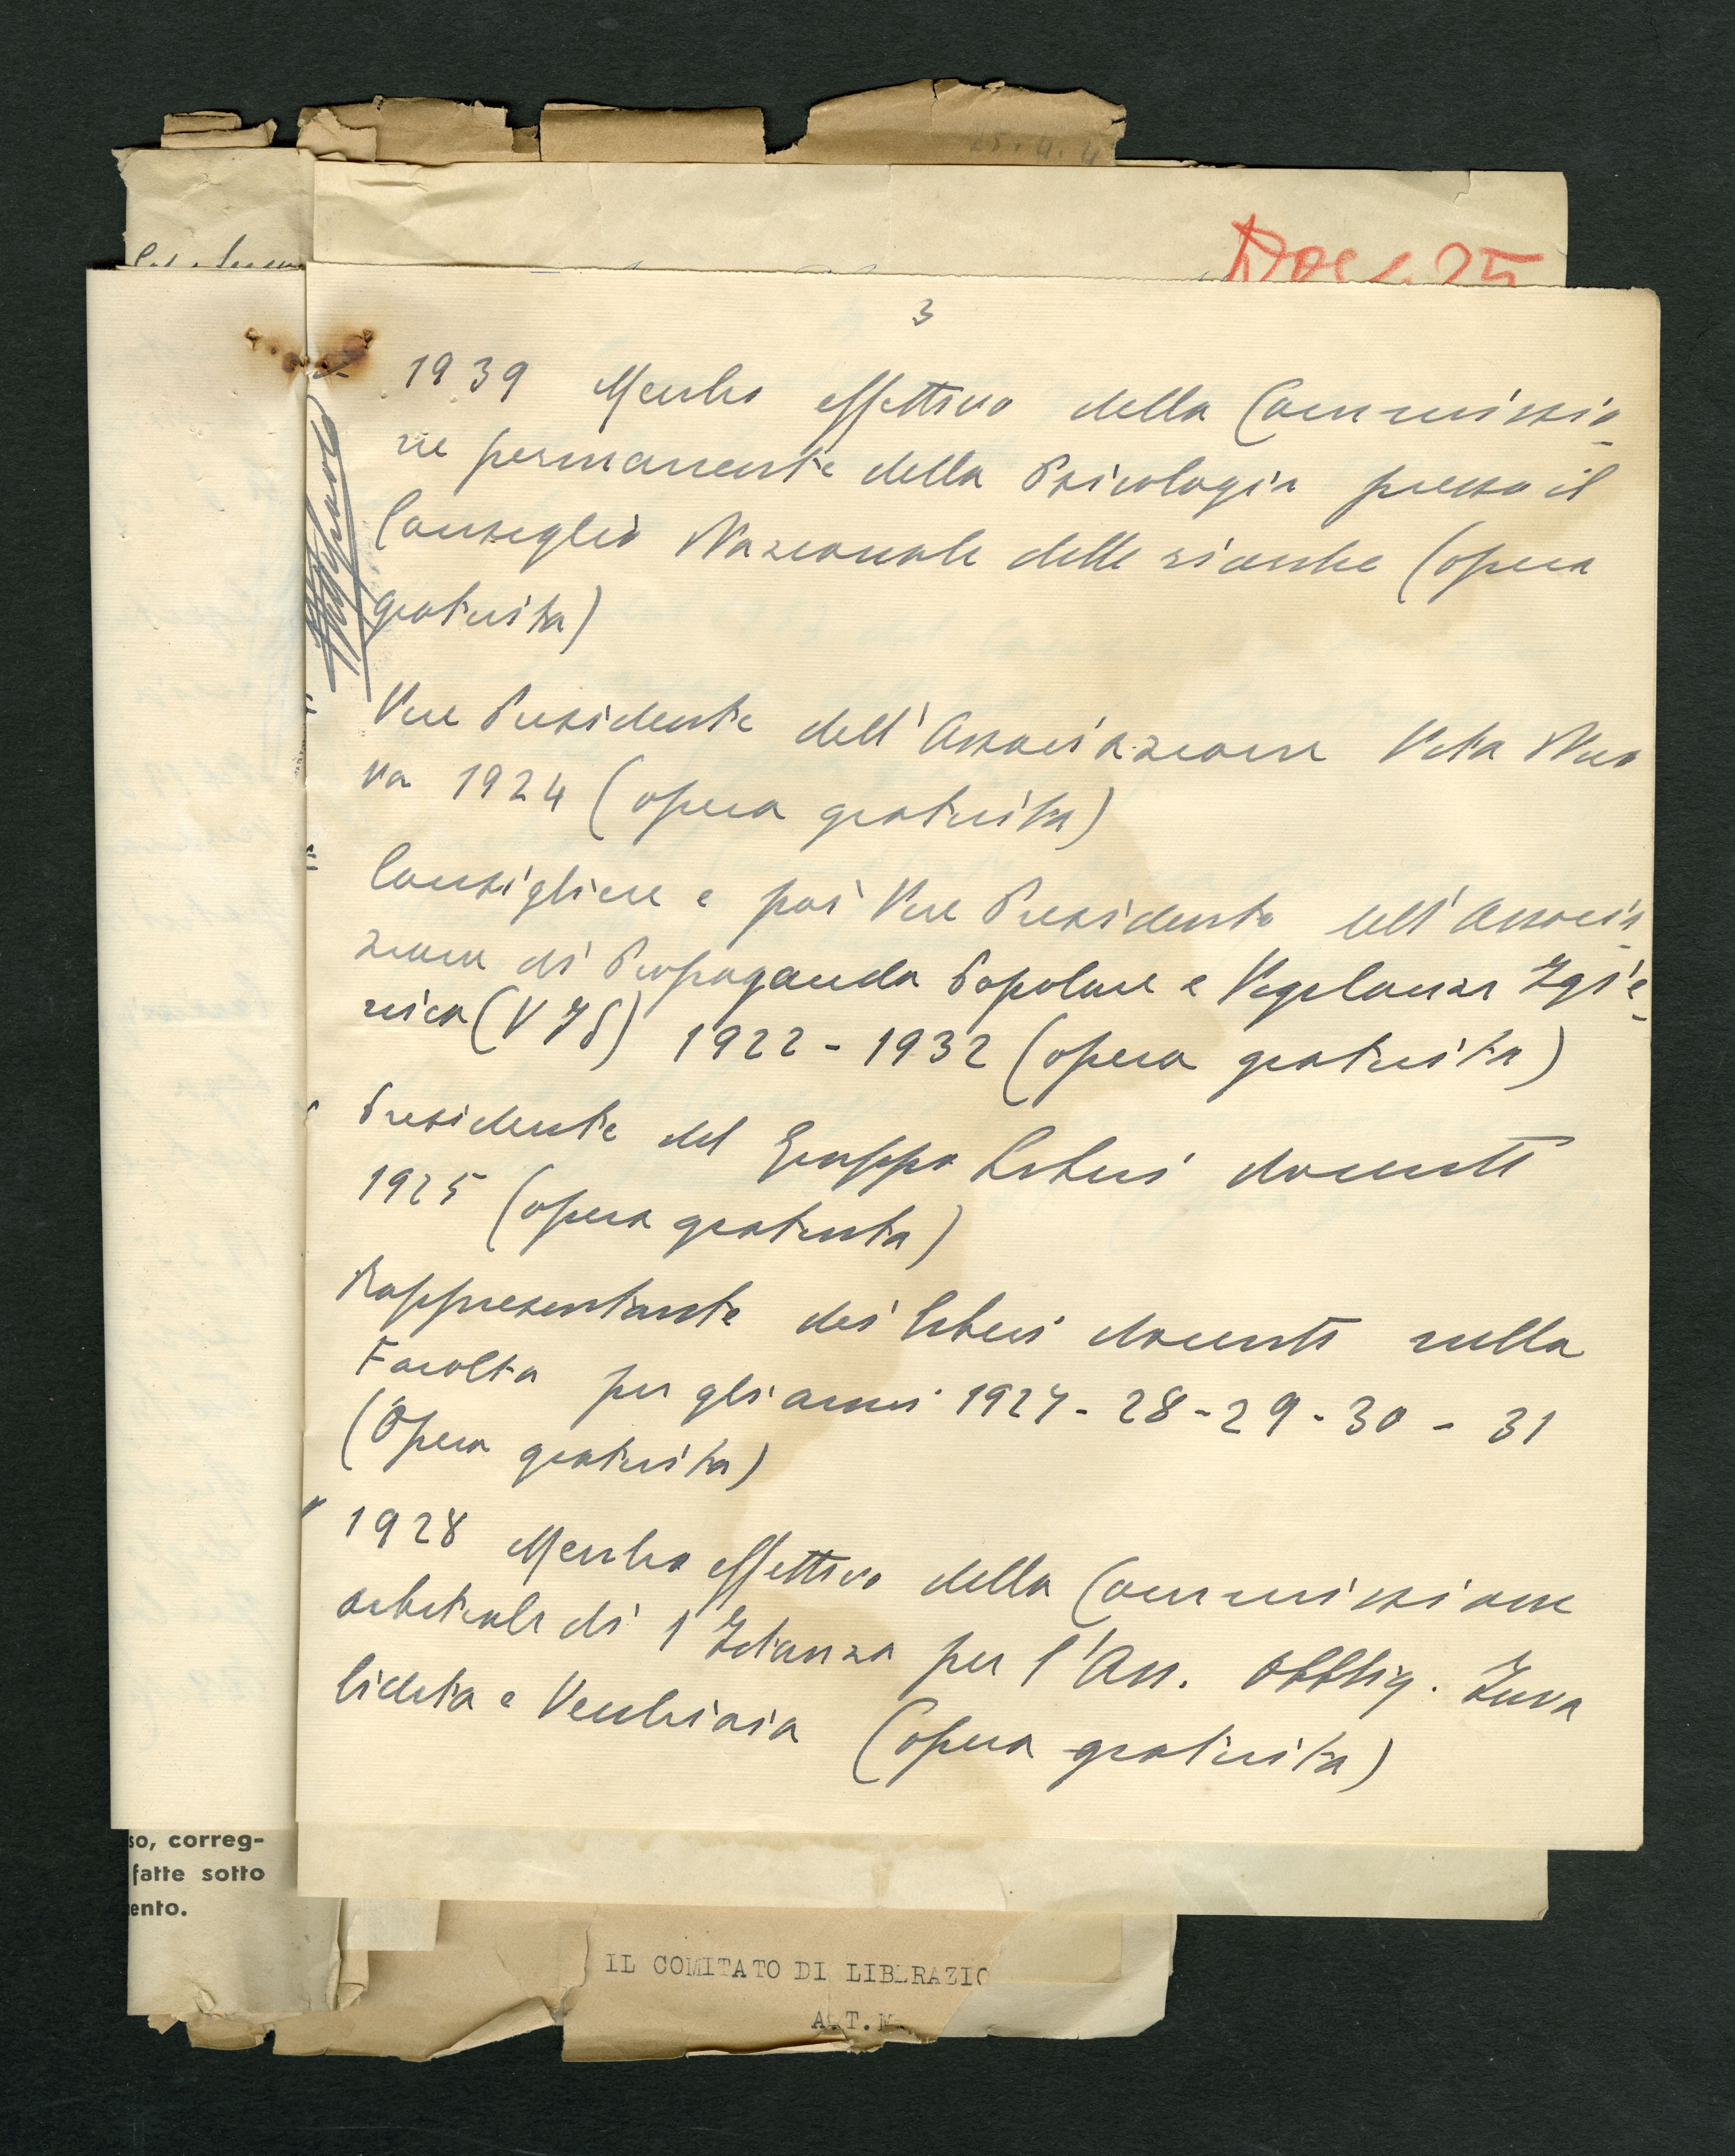 25.4.4
Doc. 25
3
1939 Membro effettivo della Commissio-
ne permanente della Psicologia presso il
Consiglio Nazionale delle ricerche (opera
gratuita)
Vice Presidente dell'Associazione Vita Nuo
va 1924 (opera gratuita)
Consigliere e poi Vice Presidente dell'Associa-
zione di Propaganda Popolare e Vigilanza Igie-
nica 1922-1932 (opera gratuita)
Presidente del Gruppo Liberi docenti
1925 (opera gratuita)
Rappresentante dei liberi docenti nella
Facolta per gli anni 1927-28-29-30-31
(Opera gratuita)
1928 Membro effettivo della Commissione
arbitrale di 1 Istanza per l'Ass. Obblig. Inva
lidita e Vecchiaia (opera gratuita)
so, correg-
fatte sotto
ento.
IL COMITATO DI LIBERAZIO